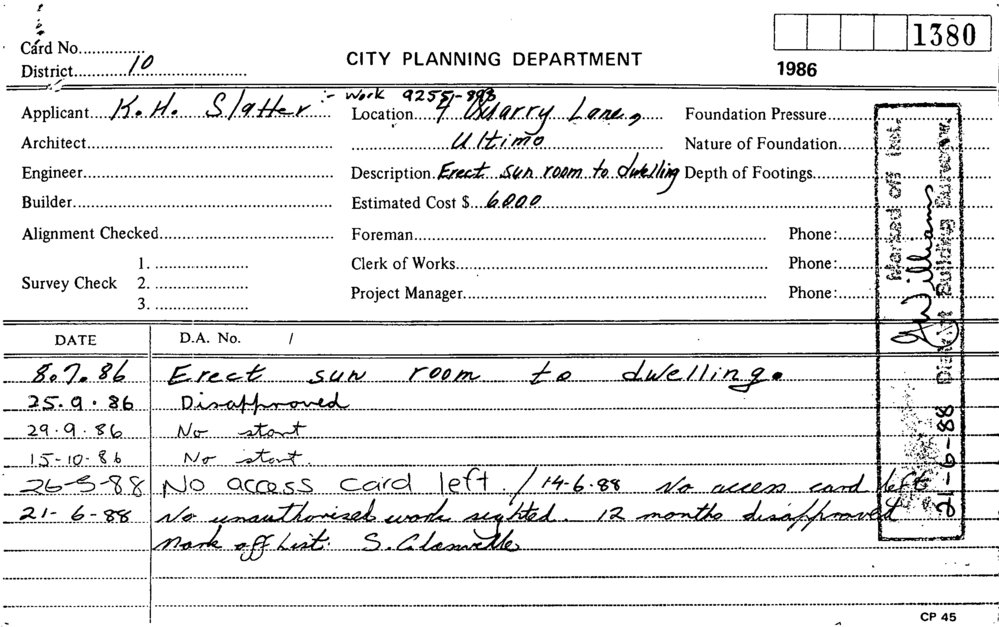 1380
Card No...............
District............10............................
CITY PLANNING DEPARTMENT
1986
:- Work 9255-898
Applicant....K. H. Slatter....
Location....4 Quarry Lane,....
Foundation Pressure....
Architect....
Ultimo
Nature of Foundation....
Engineer....
Description. Erect sun room to dwelling
Depth of Footings....
Builder....
Estimated Cost $...6000....
Alignment Checked....
Foreman....
Phone:....
Survey Check
1. ....
2. ....
3. ....
Clerk of Works....
Phone:....
Project Manager....
Phone:....
Marked off List.
Williams
District Building Surveyor.
21-6-88
DATE
D.A. No. /
8.7.86 Erect sun room to dwelling.
25.9.86 Disapproved
29.9.86 No start
15-10-86 No start.
26-5-88 No access card left. / 14-6-88 No access card left
21-6-88 No unauthorised work sighted. 12 months disapproved
Mark off List: S.
CP 45